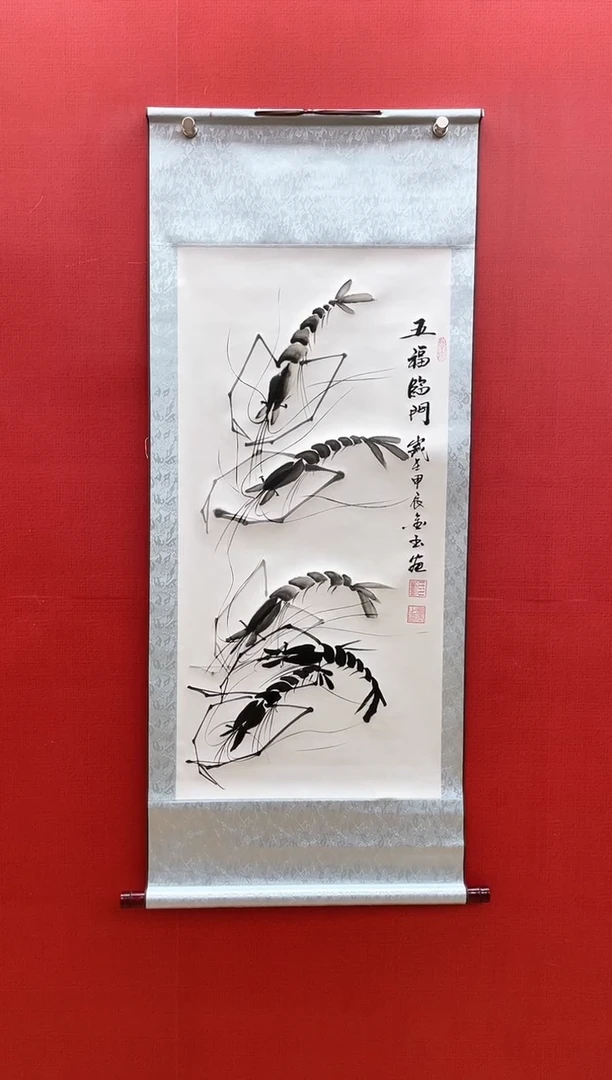 五福臨門
歲在甲辰